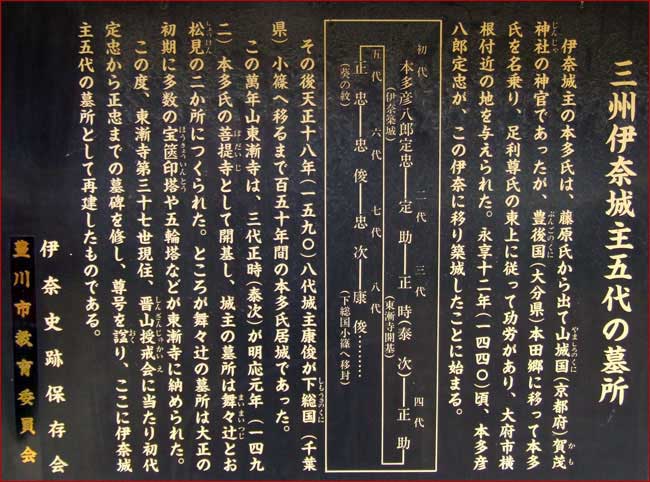 三州伊奈城主五代の墓所
伊奈城主の本多氏は、藤原氏から出て山城国(京都府)賀茂
神社の神官であったが、豊後国(大分県)本田郷に移って本多
氏を名乗り、足利尊氏の東上に従って功労があり、大府市横
根付近の地を与えられた。永享十二年(一四四〇)頃、本多彦
八郎定忠が、この伊奈に移り築城したことに始まる。
初代 二代 三代 四代
本多彦八郎定忠―定助―正時(泰次)―正助
(伊奈築城) (東漸寺開基)
五代 六代 七代 八代
正忠―忠俊―忠次―康俊………
(葵の紋) (下総国小篠へ移封)
その後天正十八年(一五九〇)八代城主康俊が下総国(千葉
県)小篠へ移るまで百五十年間の本多氏居城であった。
この萬年山東漸寺は、三代正時(泰次)が明応元年(一四九
二)本多氏の菩提寺として開基し、城主の墓所は舞々辻とお
松見の二か所につくられた。ところが舞々辻の墓所は大正の
初期に多数の宝篋印塔や五輪塔などが東漸寺に納められた。
この度、東漸寺第三十七世現住、晋山授戒会に当たり初代
定忠から正忠までの墓碑を修し、尊号を諡り、ここに伊奈城
主五代の墓所として再建したものである。
伊奈史跡保存会
豊川市教育委員会